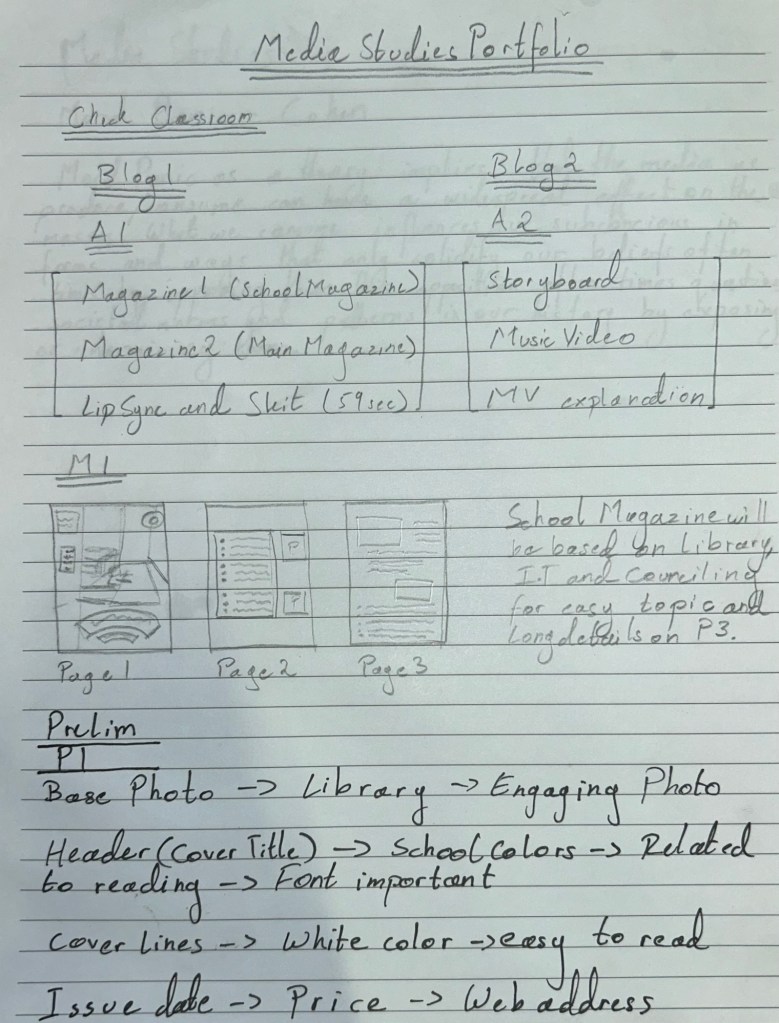 Media Studies Portfolio
Check Classroom
Blog 1
Blog 2
A.1
A.2
Magazine 1 (School Magazine)
Magazine 2 (Main Magazine)
Lip Sync and Skit (59sec)
Storyboard
Music Video
MV explanation
M1
School Magazine will
be based on Library,
I.T and Counciling
for easy topic and
Long details on P3.
Page 1
Page 2
Page 3
P
?
Prelim
P1
Base Photo -> Library -> Engaging Photo
Header (Cover Title) -> School Colors -> Related
to reading -> Font important
Cover lines -> White color -> easy to read
Issue date -> Price -> Web address